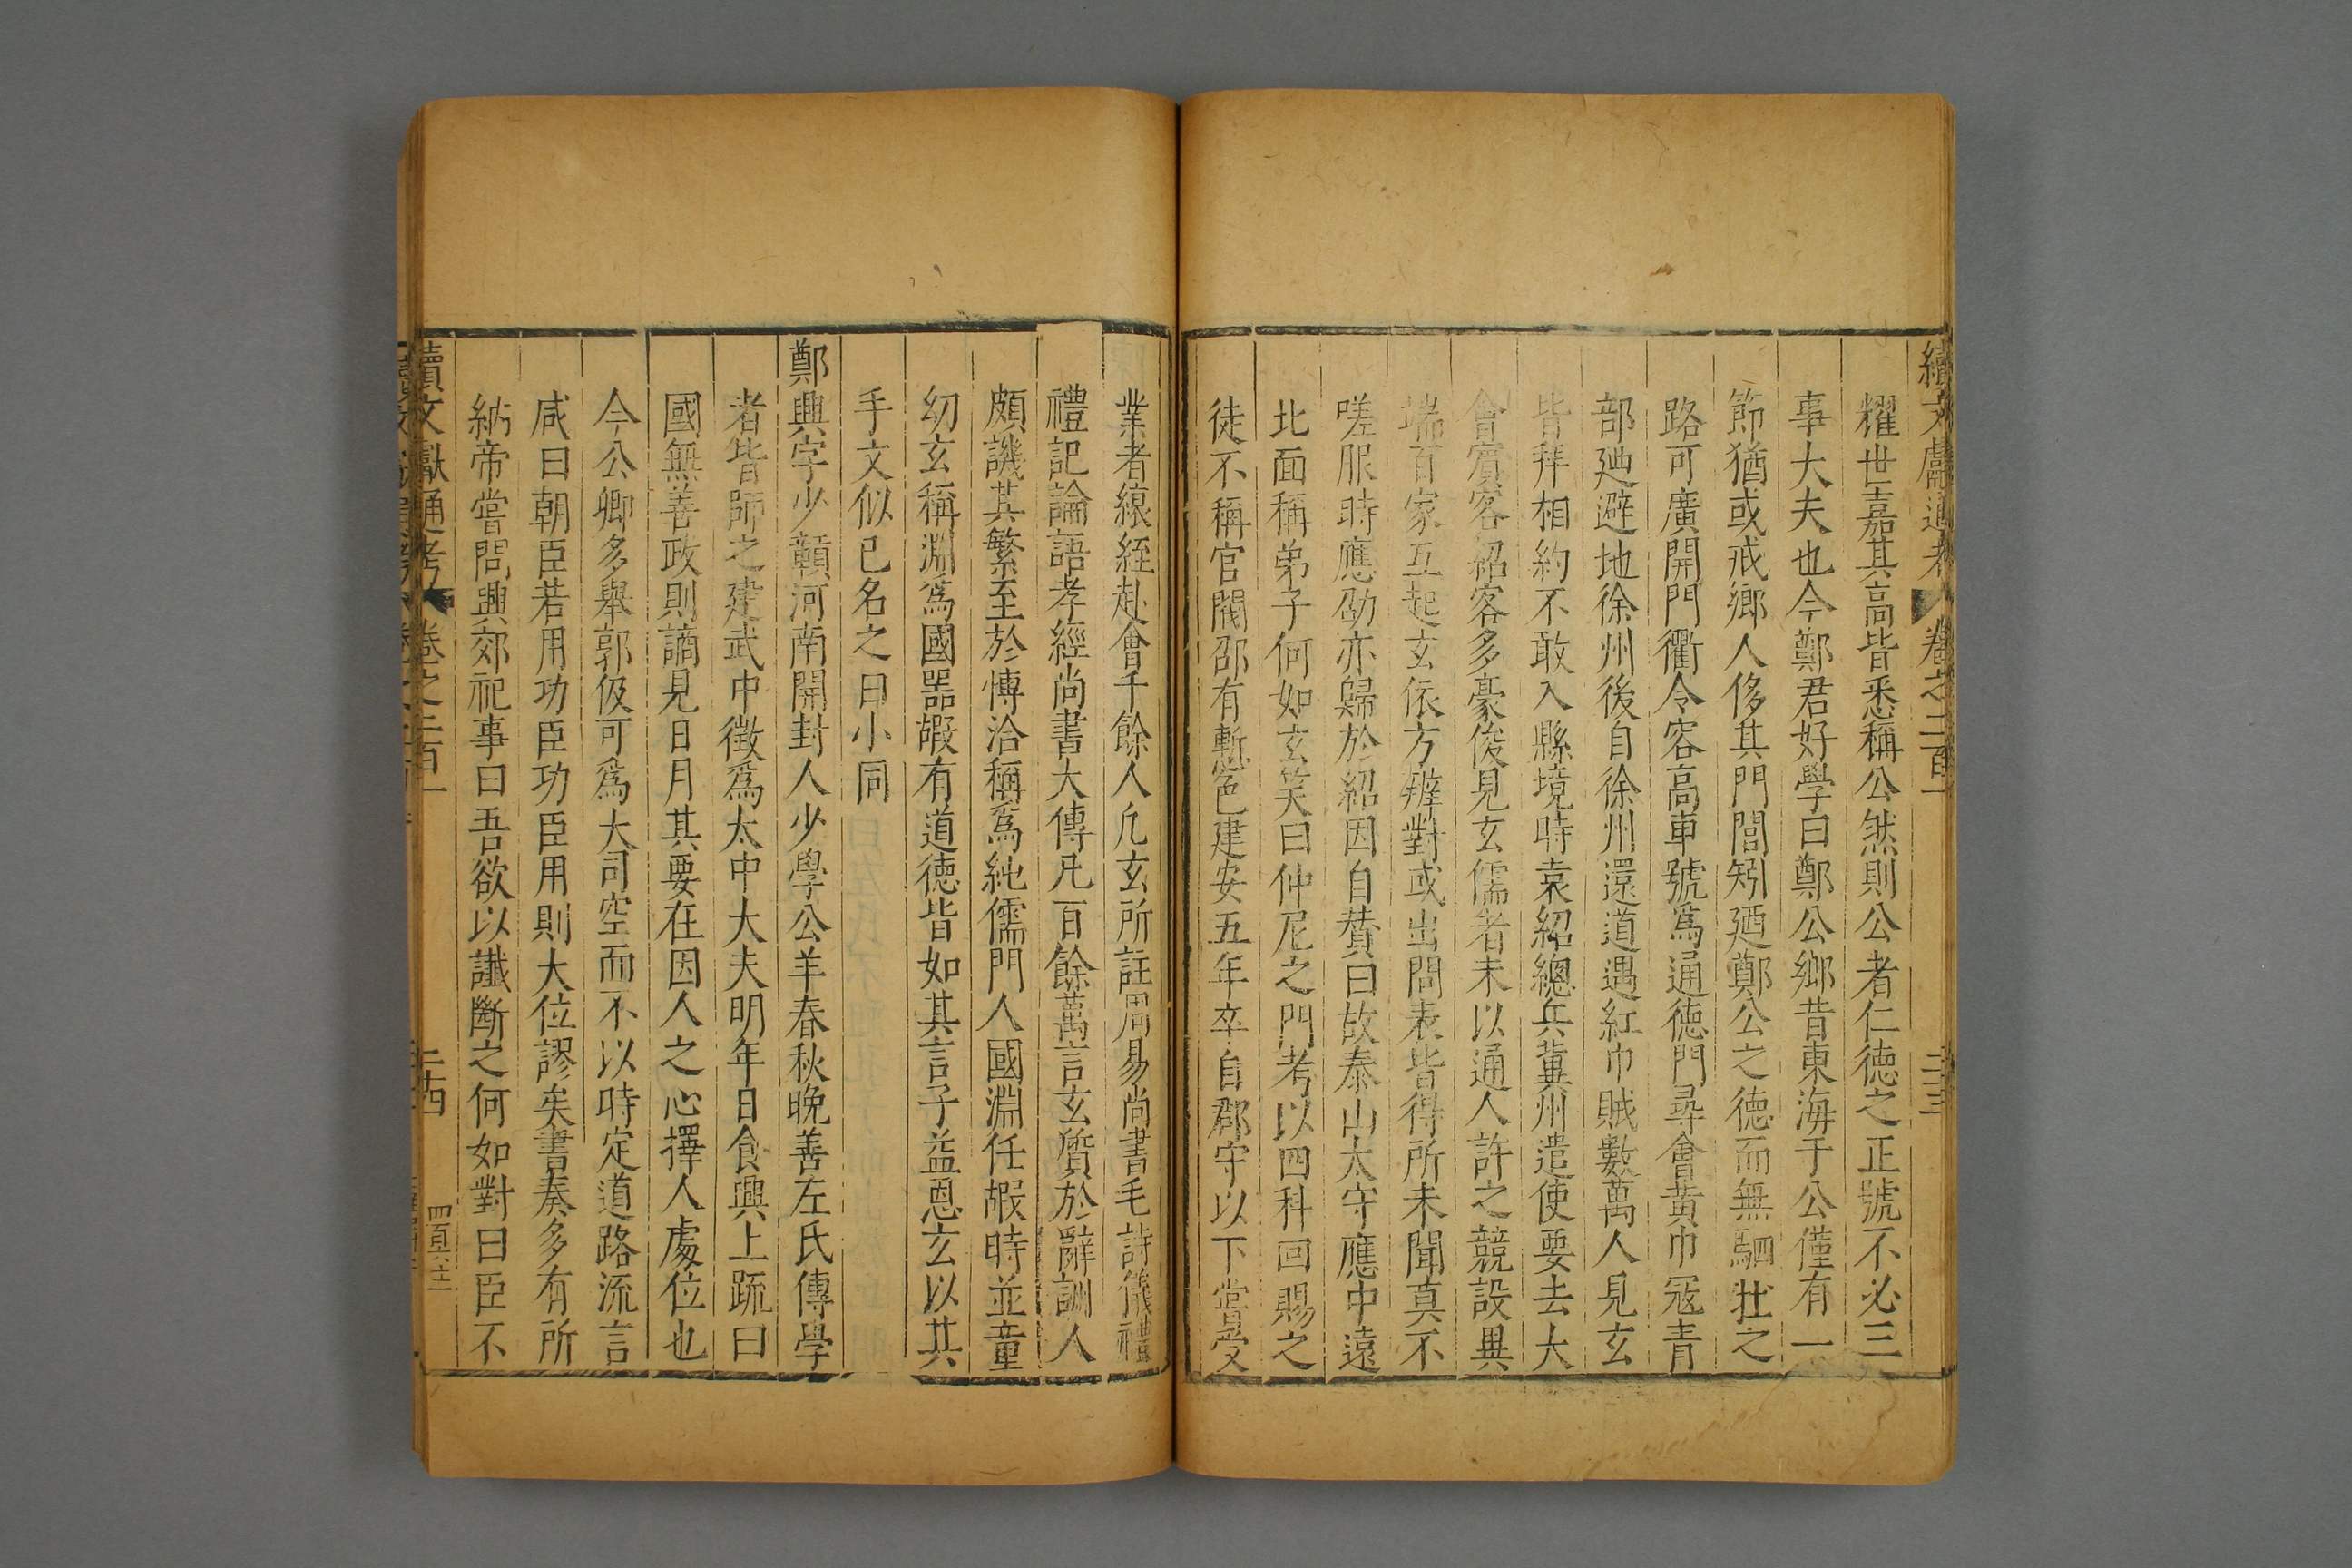 續文獻通考 卷之二百一 二三
耀世嘉其高皆悉稱公然則公者仁德之正號不必三
事大夫也今鄭君好學曰鄭公鄉昔東海于公僅有一
節猶或戒鄉人侈其門閭矧廼鄭公之德而無駟壯之
路可廣開門衢令容高車號爲通德門尋會黃巾冦青
部廼避地徐州後自徐州還道遇紅巾賊數萬人見玄
皆拜相約不敢入縣境時袁紹總兵冀州遣使要去大
會賔客紹客多豪俊見玄儒者未以通人許之競設異
端百家互起玄依方辨對或出問表皆得所未聞莫不
嗟服時應劭亦歸於紹因自賛曰故泰山太守應中遠
北面稱弟子何如玄笑曰仲尼之門考以四科回賜之
徒不稱官閥邵有慙色建安五年卒自郡守以下嘗受
業者縗絰赴會千餘人凢玄所註周易尚書毛詩儀禮
禮記論語孝經尚書大傳凡百餘萬言玄質於辭訓人
頗譏其繁至於慱洽稱爲純儒門人國淵任嘏時並童
幼玄稱淵爲國噐嘏有道德皆如其言子益恩玄以其
手文似已名之曰小同
鄭興字少贛河南開封人少學公羊春秋晚善左氏傳學
者皆師之建武中徵爲太中大夫明年日食興上䟽曰
國無善政則謫見日月其要在因人之心擇人處位也
今公卿多舉郭伋可爲大司空而不以時定道路流言
咸曰朝臣若用功臣功臣用則大位謬矣書奏多有所
納帝嘗問興郊祀事曰吾欲以讖斷之何如對曰臣不
續文獻通考 卷之二百一 二四